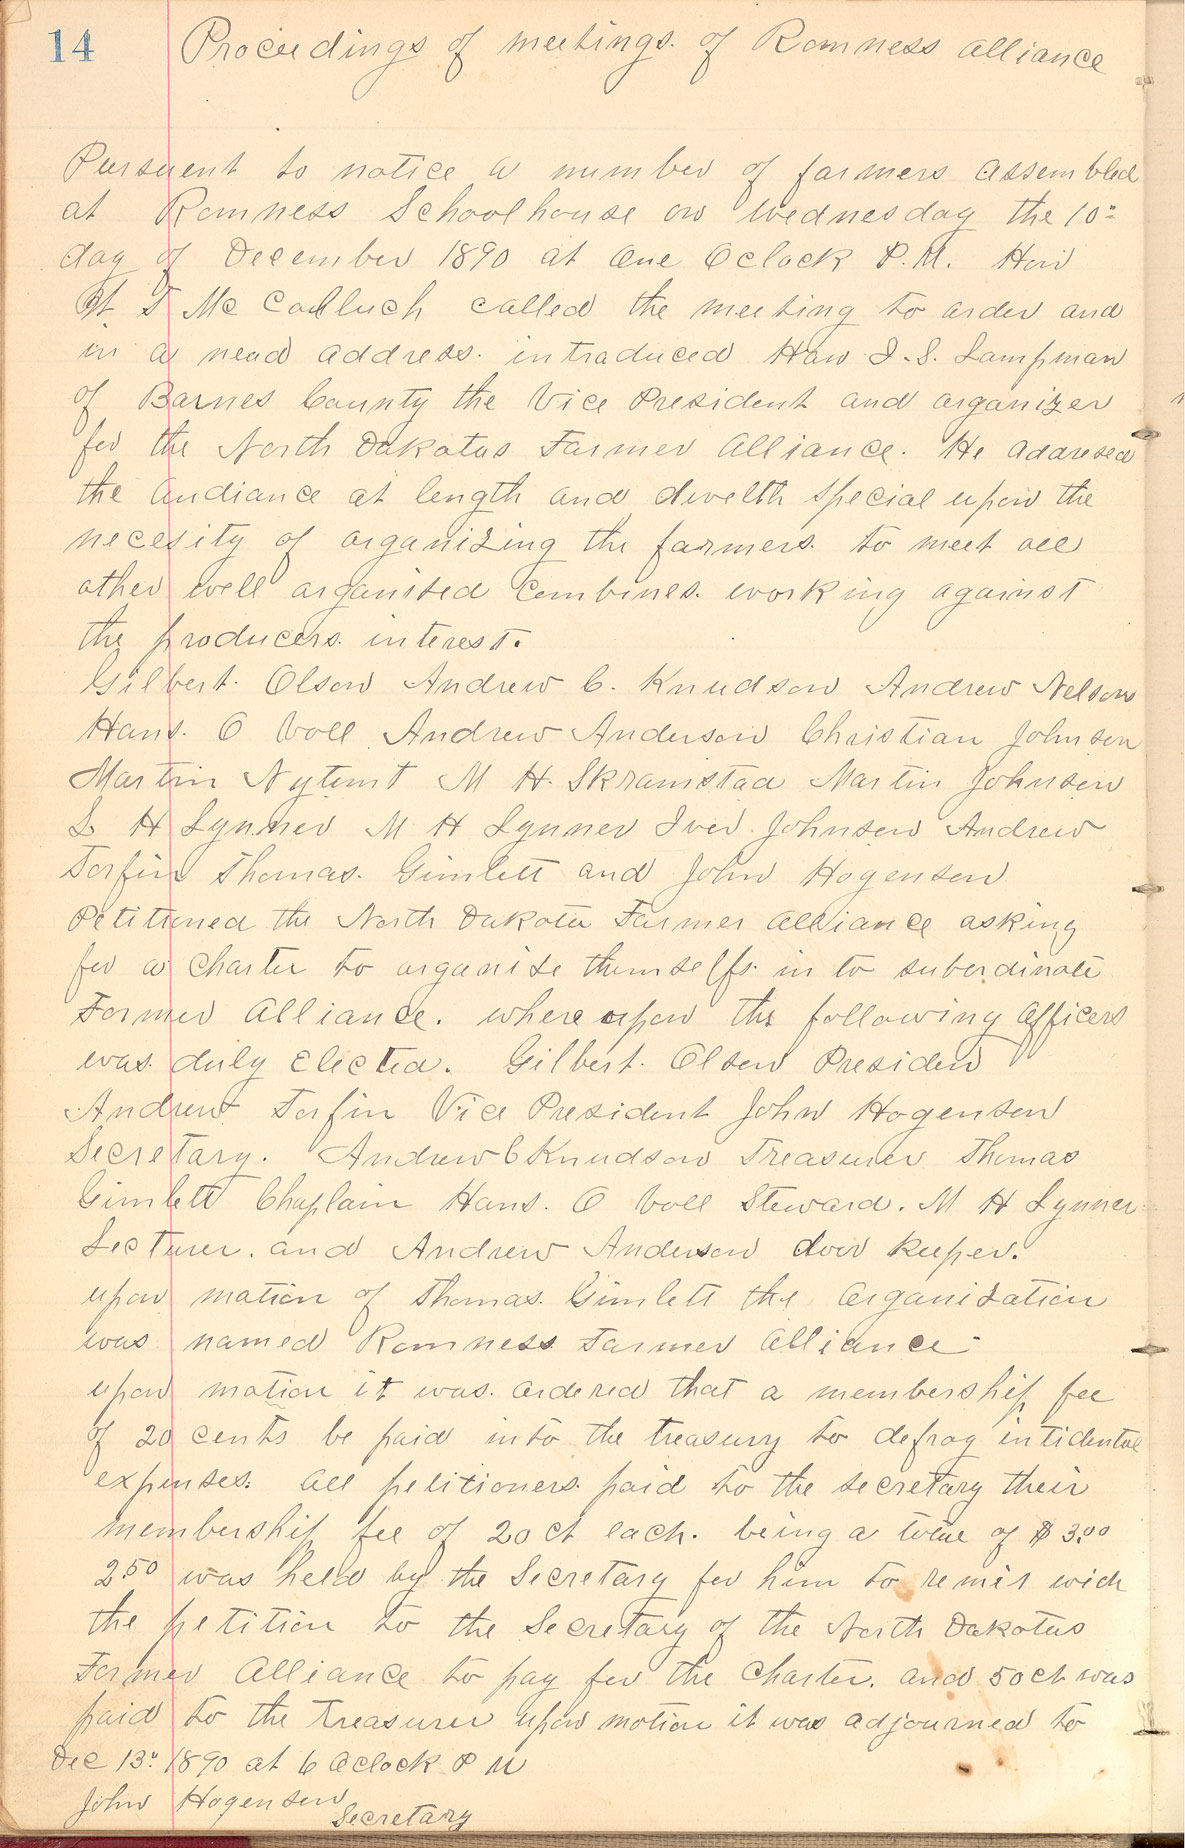 14 Proceedings of meetings. of Romness Alliance
Pursuent to notice a number of farmers assembled
at Romness Schoolhouse on Wednesday the 10"
day of December 1890 at One Oclock P.M. Hon
T McColluch called the meeting to order and
in a nead address. introduced Hon J. S. Lampman
of Barnes County the Vice President and organizer
for the North Dakotas Farmer Alliance. He addresed
the audiance at length and dwelth special upon the
necesity of organizing the farmers. to meet all
other well organised combines. working against
the producers. interest.
Gilbert. Olson Andrew C. Knudson Andrew Nelson
Hans. O Voll Andrew Anderson Christian Johnson
Martin M H. Skramstad Martin Johnson
L H Lynner M H Lynner Iver. Johnson Andrew
Torfin Thomas. Gimlett and John Hogenson
Petitioned the North Dakota Farmer Alliance asking
for a Charter to organise themselfs. in to subordinate
Farmer Alliance. where upon the following Officers
was. duly Elected. Gilbert. Olson Presiden
Andrew Torfin Vice President John Hogenson
Secretary. Andrew C Knudson Treasurer Thomas
Gimlett Chaplain Hans. O Voll Steward. M H Lynner
Lecturer. and Andrew Anderson door keeper.
upon motion of Thomas. Gimlett the Organization
was named Romness Farmer Alliance
upon motion it was. ordered that a membership fee
of 20 cents be paid into the treasury to defray intidental
expenses. All petitioners. paid to the secretary their
membership fee of 20 ct each. being a totue of $ 3.00
2 50 was held by the Secretary for him to remit wich
the petition to the Secretary of the North Dakotas
Farmer Alliance to pay for the Charter. and 50 ct was
paid to the Treasurer upon motion it was adjourned to
Dec 13" 1890 at 6 Oclock P M
John Hogenson
Secretary